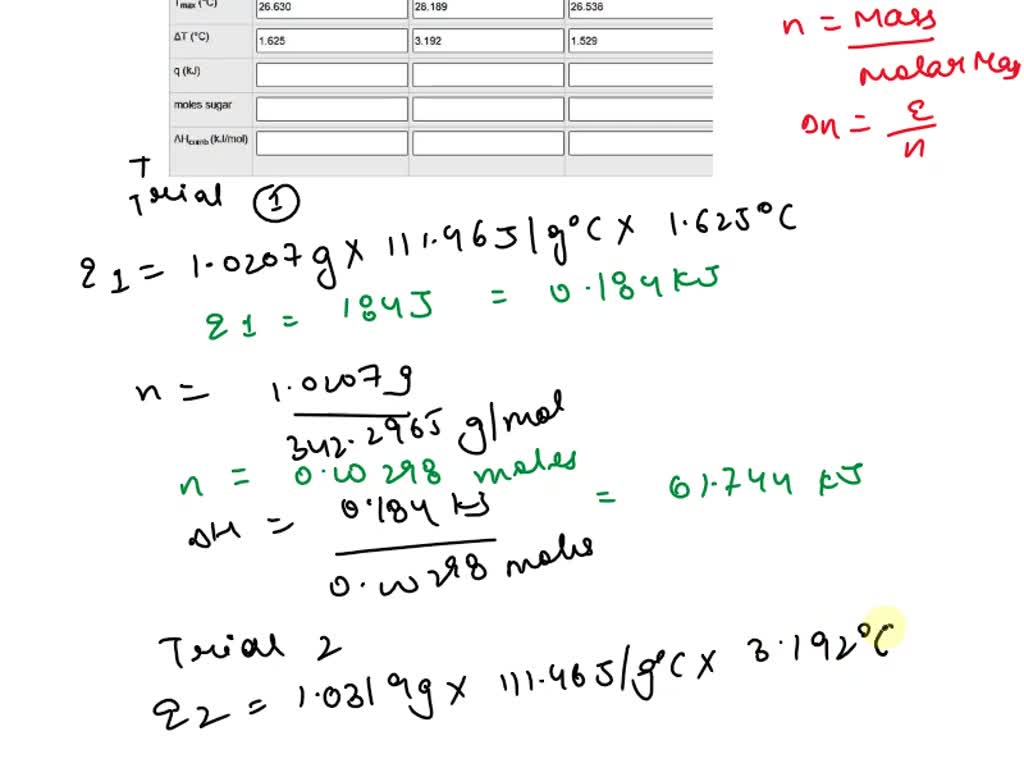 Tmax (°C) 26.630 28.189 26.538
ΔT (°C) 1.625 3.192 1.529
q (kJ)
moles sugar
ΔHcomb (kJ/mol)
n = Mass / Molar Mass
Δn = q / n
T
Trial ①
q1 = 1.0207g × 111.46J/g°C × 1.625°C
q1 = 184J = 0.184 kJ
n = 1.0207g / 342.2965 g/mol
n = 0.00298 moles
ΔH = 0.184 kJ / 0.00298 moles = 61.744 kJ
Trial 2
q2 = 1.0319g × 111.46J/g°C × 3.192°C